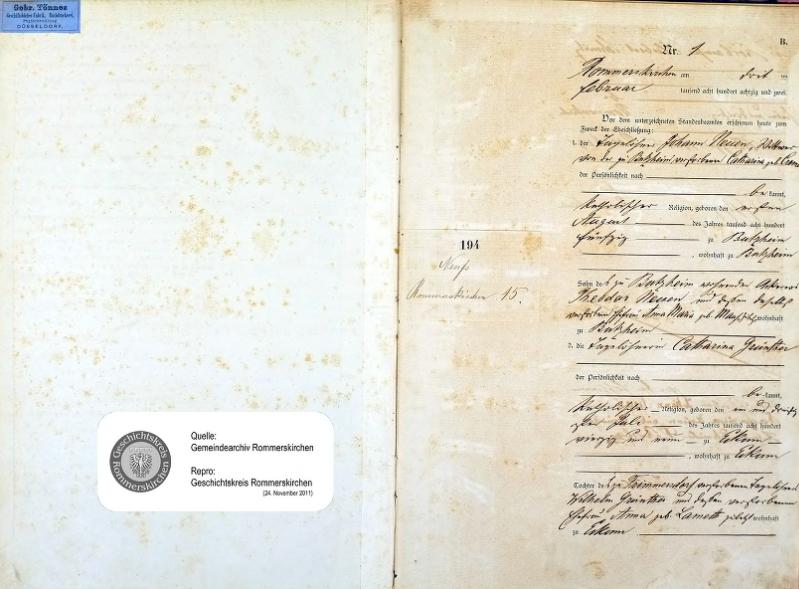 Gebr. Tönnes
Geschäftsbücher-Fabrik, Buchdruckerei,
DÜSSELDORF.
Quelle:
Gemeindearchiv Rommerskirchen
Repro:
Geschichtskreis Rommerskirchen
(24. November 2011)
Geschichtskreis
Rommerskirchen
194
Neuß
Rommerskirchen 15.
B.
Nr. 1
Rommerskirchen am drit
Februar tausend acht hundert achtzig und zwei.
Vor dem unterzeichneten Standesbeamten erschienen heute zum
Zweck der Eheschließung:
1. der Tagelöhner Johann Neuen, Wittwer
von der zu Butzheim verstorbenen Catharina geb.
der Persönlichkeit nach
be kannt,
katholischer Religion, geboren den ersten
August des Jahres tausend acht hundert
fünfzig zu Butzheim
, wohnhaft zu Butzheim
Sohn des zu Butzheim wohnenden Ackerers
Theodor Neuen und dessen daselbst
verstorbenen Ehefrau Anna Maria geb. wohnhaft
zu Butzheim
2. die Tagelöhnerin Catharina Grünther
der Persönlichkeit nach
be kannt,
katholischer Religion, geboren den ein und dreißig
sten Juli des Jahres tausend acht hundert
vierzig und neun zu Eckum
, wohnhaft zu Eckum
Tochter des zu verstorbenen Tagelöhners
Wilhelm Grünther und dessen verstorbenen
Ehefrau Anna geb. zuletzt wohnhaft
zu Eckum